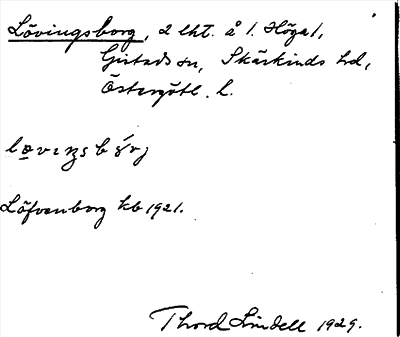 Lövingsborg, 2 lht. å 1. Höga 1,
Gistads sn, Skärkinds hd,
Östergötl. l.
Löfvenborg kb 1921.
Thord Lindell 1929.